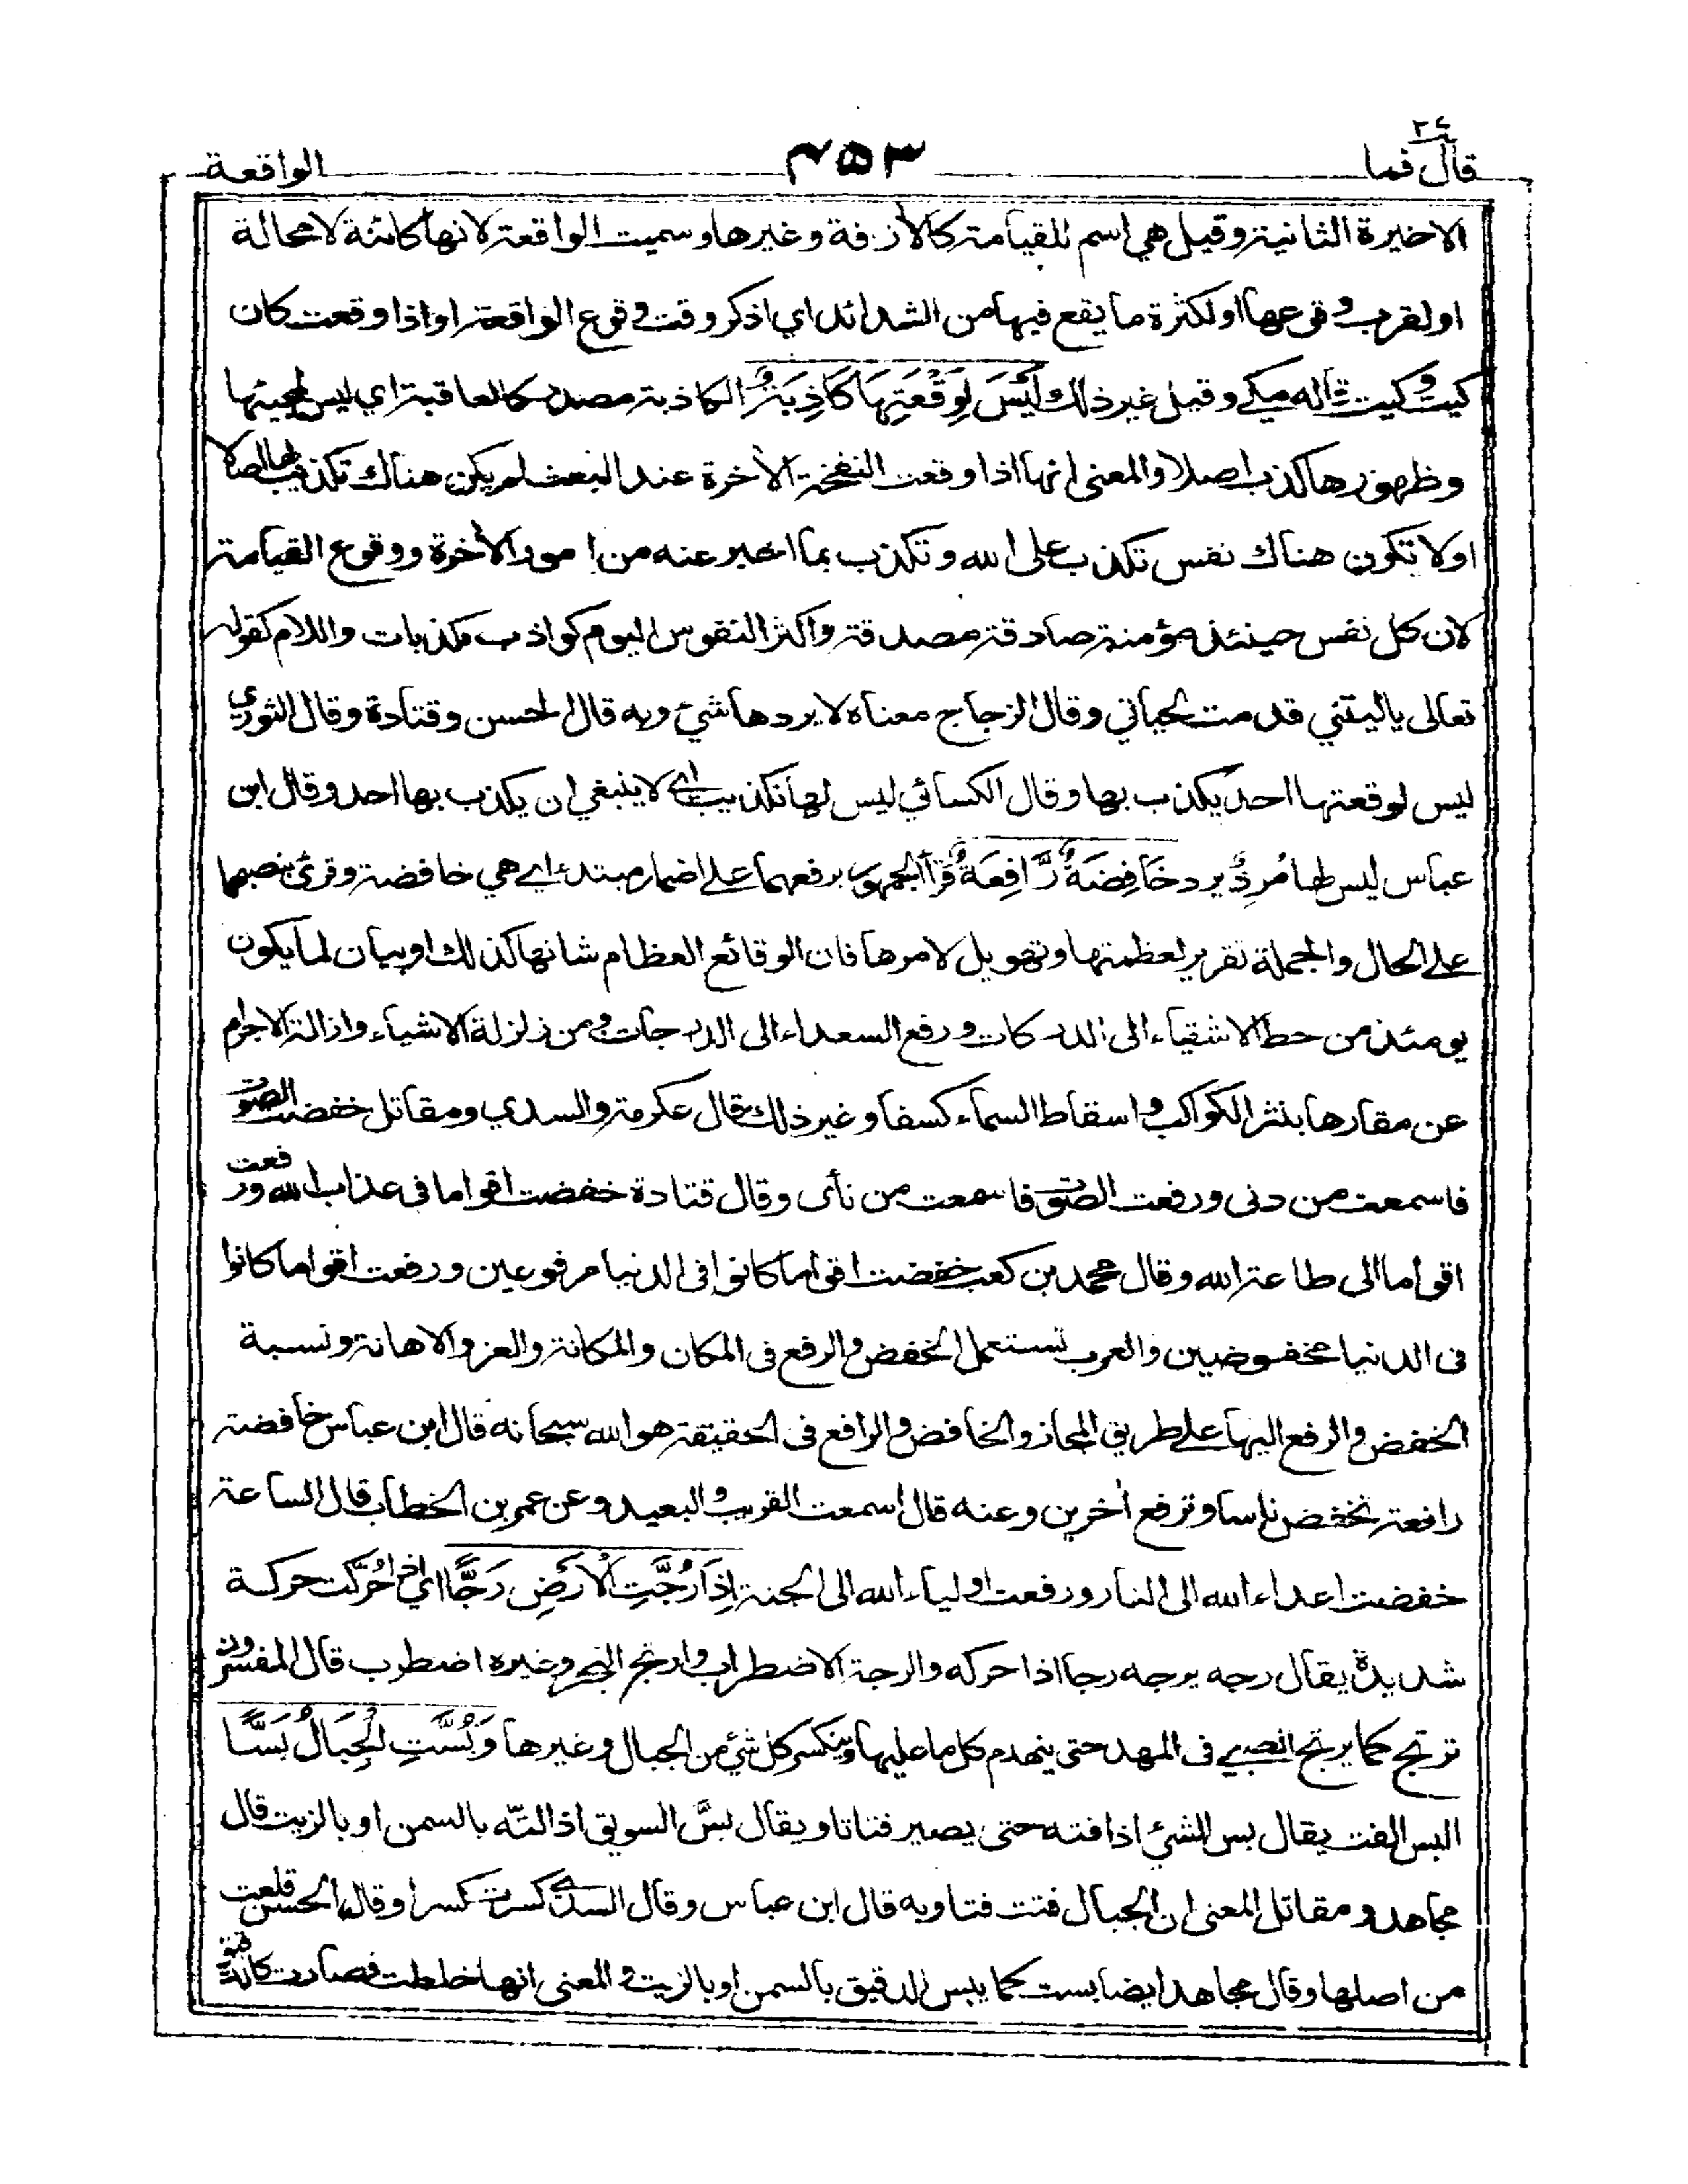 قال فما ٢٧
٢٥٣
الواقعة
الاخيرة الثانية وقيل هي اسم للقيامة كالأزفة وغيرها وسميت الواقعة لانها كائنة لا محالة
او لقرب وقوعها او لكثرة ما يقع فيها من الشدائد اي اذكر وقت وقوع الواقعة او اذا وقعت كان
كيت وكيت قاله مكي وقيل غير ذلك لَيْسَ لِوَقْعَتِهَا كَاذِبَةٌ الكاذبة مصدر كالعاقبة اي ليس لمجيئها
وظهورها كذب اصلا والمعنى انها اذا وقعت النفخة الأخرة عند البعث لم يكن هناك تكذيب بها اصلا
او لا تكون هناك نفس تكذب على الله وتكذب بما اخبر عنه من امور الأخرة ووقوع القيامة
لان كل نفس حينئذ مؤمنة صادقة مصدقة واكثر النفوس اليوم كواذب مكذبات واللام كقوله
تعالى ياليتني قدمت لحياتي وقال الزجاج معناه لا يردها شيء وبه قال الحسن وقتادة وقال الثوري
ليس لوقعتها احد يكذب بها وقال الكسائي ليس لها تكذيب اي لا ينبغي ان يكذب بها احد وقال ابن
عباس ليس لها مُردٌّ يرد خَافِضَةٌ رَّافِعَةٌ قرأ الجمهور برفعهما على اضمار مبتدء اي هي خافضة وقرئ بنصبهما
على الحال والجملة تقرير لعظمتها وتهويل لامرها فان الوقائع العظام شانها كذلك او بيان لما يكون
يومئذ من حط الاشقياء الى الدركات ورفع السعداء الى الدرجات ومن زلزلة الاشياء وازالة الاجرام
عن مقارها بنثر الكواكب واسقاط السماء كسفا وغير ذلك قال عكرمة والسدي ومقاتل خفضت الصوت
فاسمعت من دنى ورفعت الصوت فاسمعت من نأى وقال قتادة خفضت اقواما فى عذاب الله ورفعت
اقواما الى طاعة الله وقال محمد بن كعب خفضت اقواما كانوا فى الدنيا مرفوعين ورفعت اقواما كانوا
فى الدنيا مخفوضين والعرب تستعمل الخفض والرفع فى المكان والمكانة والعز والاهانة ونسبة
الخفض والرفع اليها على طريق المجاز والخافض والرافع فى الحقيقة هو الله سبحانه قال ابن عباس خافضة
رافعة تخفض ناسا وترفع أخرين وعنه قال اسمعت القريب والبعيد وعن عمر بن الخطاب قال الساعة
خفضت اعداء الله الى النار ورفعت اولياء الله الى الجنة إِذَا رُجَّتِ الْأَرْضُ رَجًّا اي اذا حُرّكت حركة
شديدة يقال رجه يرجه رجا اذا حركه والرجة الاضطراب وارتج البحر وغيره اضطرب قال المفسرون
ترتج كما يرتج الصبي فى المهد حتى ينهدم كل ما عليها وينكسر كل شيء من الجبال وغيرها وَبُسَّتِ الْجِبَالُ بَسًّا
البس الفت يقال بس الشئ اذا فته حتى يصير فتاتا ويقال بسَّ السويق اذا لتّه بالسمن او بالزيت قال
مجاهد ومقاتل المعنى ان الجبال فتت فتا وبه قال ابن عباس وقال السدي كسرت كسرا وقال الحسن قلعت
من اصلها وقال مجاهد ايضا بست كما يبس الدقيق بالسمن او بالزيت والمعنى انها خلطت فصارت كالدقيق